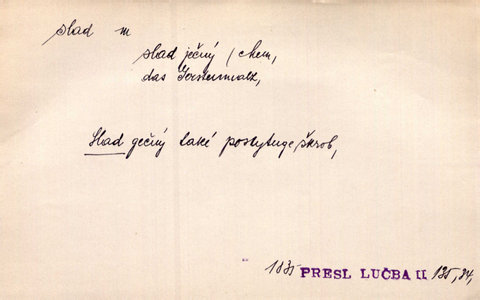 slad m
slad ječný (chem,
das Gerstenmalz,
Slad gečný také poskytuge škrob,
1835 PRESL LUČBA II 135, 84,